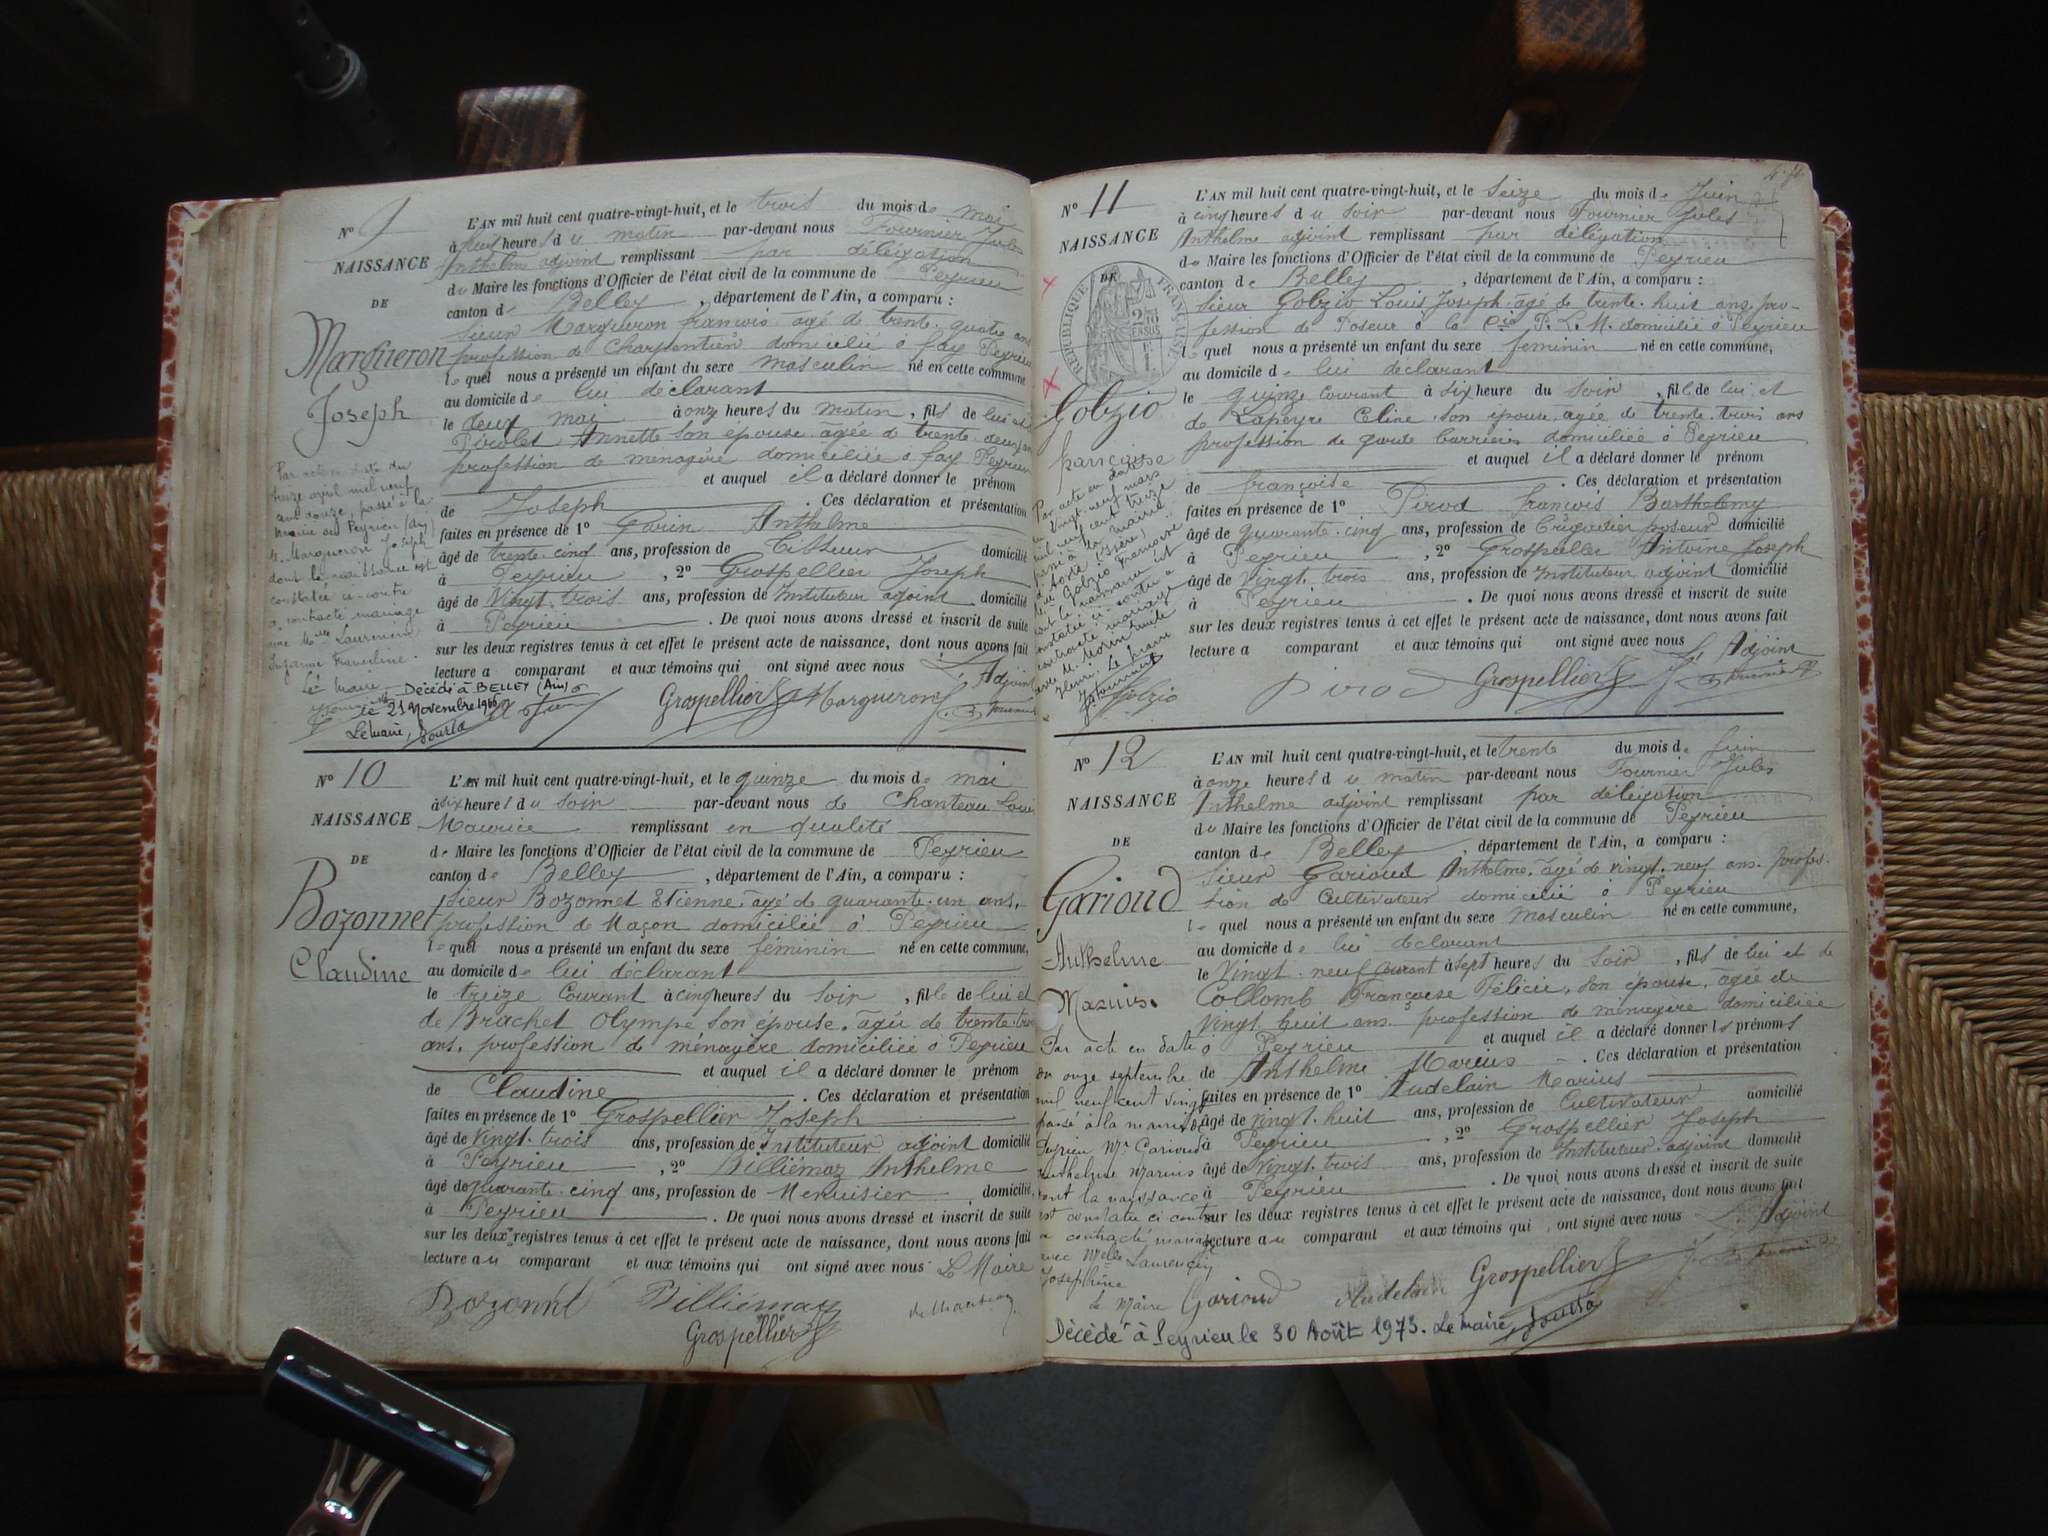 N° 9
NAISSANCE
DE
Margueron
Joseph
L'AN mil huit cent quatre-vingt-huit, et le trois du mois de mai
à huit heures du matin par-devant nous Fournier Jules
Anthelme adjoint remplissant par délégation
du Maire les fonctions d'Officier de l'état civil de la commune de Peyrieu
canton de Belley, département de l'Ain, a comparu :
Sieur Margueron françois âgé de trente-quatre ans
profession de Charpentier domicilié à fay Peyrieu
lequel nous a présenté un enfant du sexe masculin né en cette commune
au domicile de lui déclarant
le deux mai à onze heures du matin, fils de lui et
Pirolet Annette son épouse âgée de trente-deux ans
profession de ménagère domiciliée à fay Peyrieu
et auquel il a déclaré donner le prénom
de Joseph. Ces déclaration et présentation
faites en présence de 1° Garin Anthelme
âgé de trente-cinq ans, profession de domicilié
à Peyrieu, 2° Grospellier Joseph
âgé de Vingt-trois ans, profession de Instituteur adjoint domicilié
à Peyrieu. De quoi nous avons dressé et inscrit de suite
sur les deux registres tenus à cet effet le présent acte de naissance, dont nous avons fait
lecture a comparant et aux témoins qui ont signé avec nous L'Adjoint
Grospellier Margueron
Par acte en date du
treize avril mil neuf
cent douze, passé à la
mairie de Peyrieu (Ain)
M. Margueron Joseph
dont la naissance est
constatée ci-contre
a contracté mariage
avec Melle Laurencin
Le Maire
Décédé à BELLEY (Ain)
le 21 Novembre 1966
Le maire,
N° 10
NAISSANCE
DE
Bozonnet
Claudine
L'AN mil huit cent quatre-vingt-huit, et le quinze du mois de mai
à six heures du soir par-devant nous de Chanteau Louis
Maurice remplissant en qualité
de Maire les fonctions d'Officier de l'état civil de la commune de Peyrieu
canton de Belley, département de l'Ain, a comparu :
Sieur Bozonnet Etienne, âgé de quarante-un ans,
profession de Maçon domicilié à Peyrieu
lequel nous a présenté un enfant du sexe féminin né en cette commune,
au domicile de lui déclarant
le treize Courant à cinq heures du soir, fille de lui et
de Brachet Olympe son épouse, âgée de trente-trois
ans, profession de ménagère domiciliée à Peyrieu
et auquel il a déclaré donner le prénom
de Claudine. Ces déclaration et présentation
faites en présence de 1° Grospellier Joseph
âgé de Vingt-trois ans, profession de Instituteur adjoint domicilié
à Peyrieu, 2° Billiémaz Anthelme
âgé de quarante-cinq ans, profession de Menuisier, domicilié
à Peyrieu. De quoi nous avons dressé et inscrit de suite
sur les deux registres tenus à cet effet le présent acte de naissance, dont nous avons fait
lecture au comparant et aux témoins qui ont signé avec nous Le Maire
Bozonnet Billiémaz de Chanteau
Grospellier
N° 11
NAISSANCE
DE
RÉPUBLIQUE FRANÇAISE
Golzio
françoise
L'AN mil huit cent quatre-vingt-huit, et le Seize du mois de Juin
à cinq heures du soir par-devant nous Fournier Jules
Anthelme adjoint remplissant par délégation
du Maire les fonctions d'Officier de l'état civil de la commune de Peyrieu
canton de Belley, département de l'Ain, a comparu :
Sieur Golzio Louis Joseph âgé de trente-huit ans, pro-
fession de Poseur à la Cie P. L. M. domicilié à Peyrieu
lequel nous a présenté un enfant du sexe feminin né en cette commune,
au domicile de lui déclarant
le quinze courant à six heure du soir, fille de lui et
de Lapeyre Celine son épouse agée de trente-trois ans
profession de garde barrière domiciliée à Peyrieu
et auquel il a déclaré donner le prénom
de françoise. Ces déclaration et présentation
faites en présence de 1° Pirod françois Barthélemy
âgé de quarante-cinq ans, profession de Brigadier poseur domicilié
à Peyrieu, 2° Grospellier Antoine Joseph
âgé de Vingt-trois ans, profession de Instituteur adjoint domicilié
à Peyrieu. De quoi nous avons dressé et inscrit de suite
sur les deux registres tenus à cet effet le présent acte de naissance, dont nous avons fait
lecture a comparant et aux témoins qui ont signé avec nous L'Adjoint
Golzio Pirod Grospellier
Par acte en date
du vingt-neuf mars
mil neuf cent treize
passé à la mairie
Golzio françoise
dont la naissance est
constatée ci-contre a
contracté mariage
Henri. Le Maire
N° 12
NAISSANCE
DE
Garioud
Anthelme
Marius.
L'AN mil huit cent quatre-vingt-huit, et le trente du mois de Juin
à onze heures du matin par-devant nous Fournier Jules
Anthelme adjoint remplissant par délégation
du Maire les fonctions d'Officier de l'état civil de la commune de Peyrieu
canton de Belley, département de l'Ain, a comparu :
Sieur Garioud Anthelme, âgé de vingt-neuf ans, profes-
sion de Cultivateur domicilié à Peyrieu
lequel nous a présenté un enfant du sexe masculin né en cette commune,
au domicile de lui déclarant
le Vingt-neuf Courant à sept heures du Soir, fils de lui et de
Collomb Françoise Félicie, son épouse, âgée de
Vingt huit ans, profession de ménagère domiciliée
à Peyrieu et auquel il a déclaré donner les prénoms
de Anthelme Marius. Ces déclaration et présentation
faites en présence de 1° Audelain Marius
âgé de Vingt-huit ans, profession de Cultivateur domicilié
à Peyrieu, 2° Grospellier Joseph
âgé de Vingt-trois ans, profession de Instituteur adjoint domicilié
à Peyrieu. De quoi nous avons dressé et inscrit de suite
sur les deux registres tenus à cet effet le présent acte de naissance, dont nous avons fait
lecture au comparant et aux témoins qui ont signé avec nous L'Adjoint
Garioud Audelain Grospellier
Par acte en date
du onze septembre
mil neuf cent vingt
passé à la mairie de
Peyrieu Mr Garioud
Anthelme Marius
dont la naissance
est constatée ci contre
a contracté mariage
avec Melle Laurencin
Joséphine
Le Maire
Décédé à Peyrieu le 30 Août 1973. Le maire,